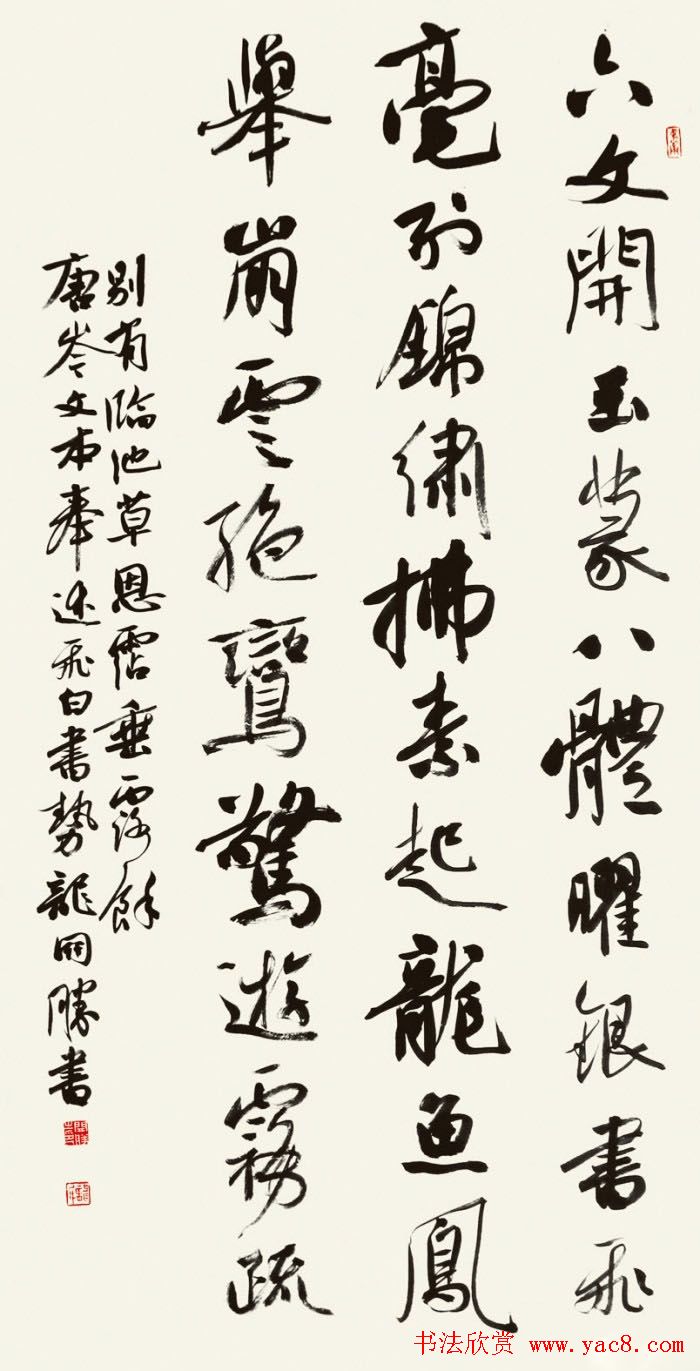 六文開玉篆八體曜銀書飛
毫列錦繡拂素起龍魚鳳
舉崩雲絕鸞驚遊霧疏
別有臨池草恩霑垂露餘
唐岑文本奉述飛白書勢龍開勝書
书法欣赏 www.yac8.com